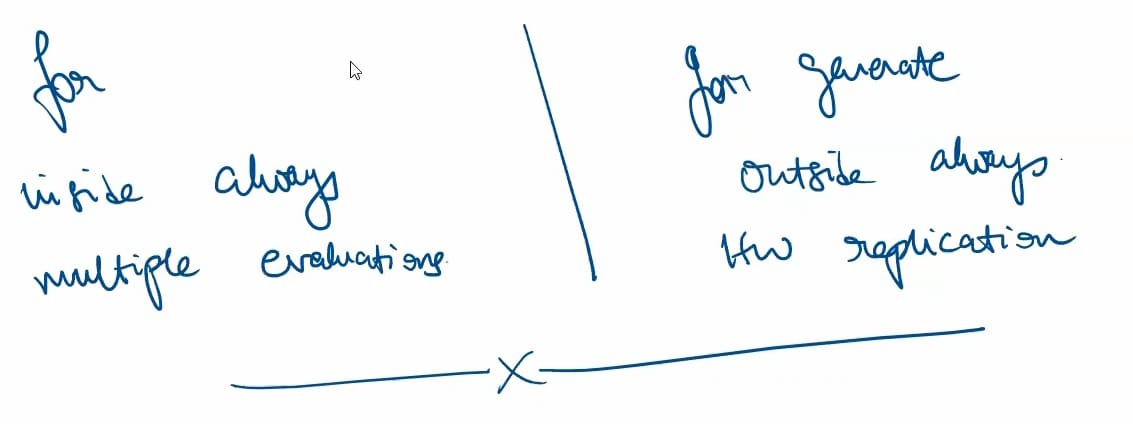 for
inside always
multiple evaluations.
for generate
outside always.
HW replication
X